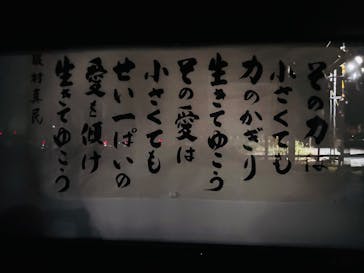 その力は
小さくても
力のかぎり
生きてゆこう
その愛は
小さくても
せい一ぱいの
愛を傾け
生きてゆこう
坂村真民